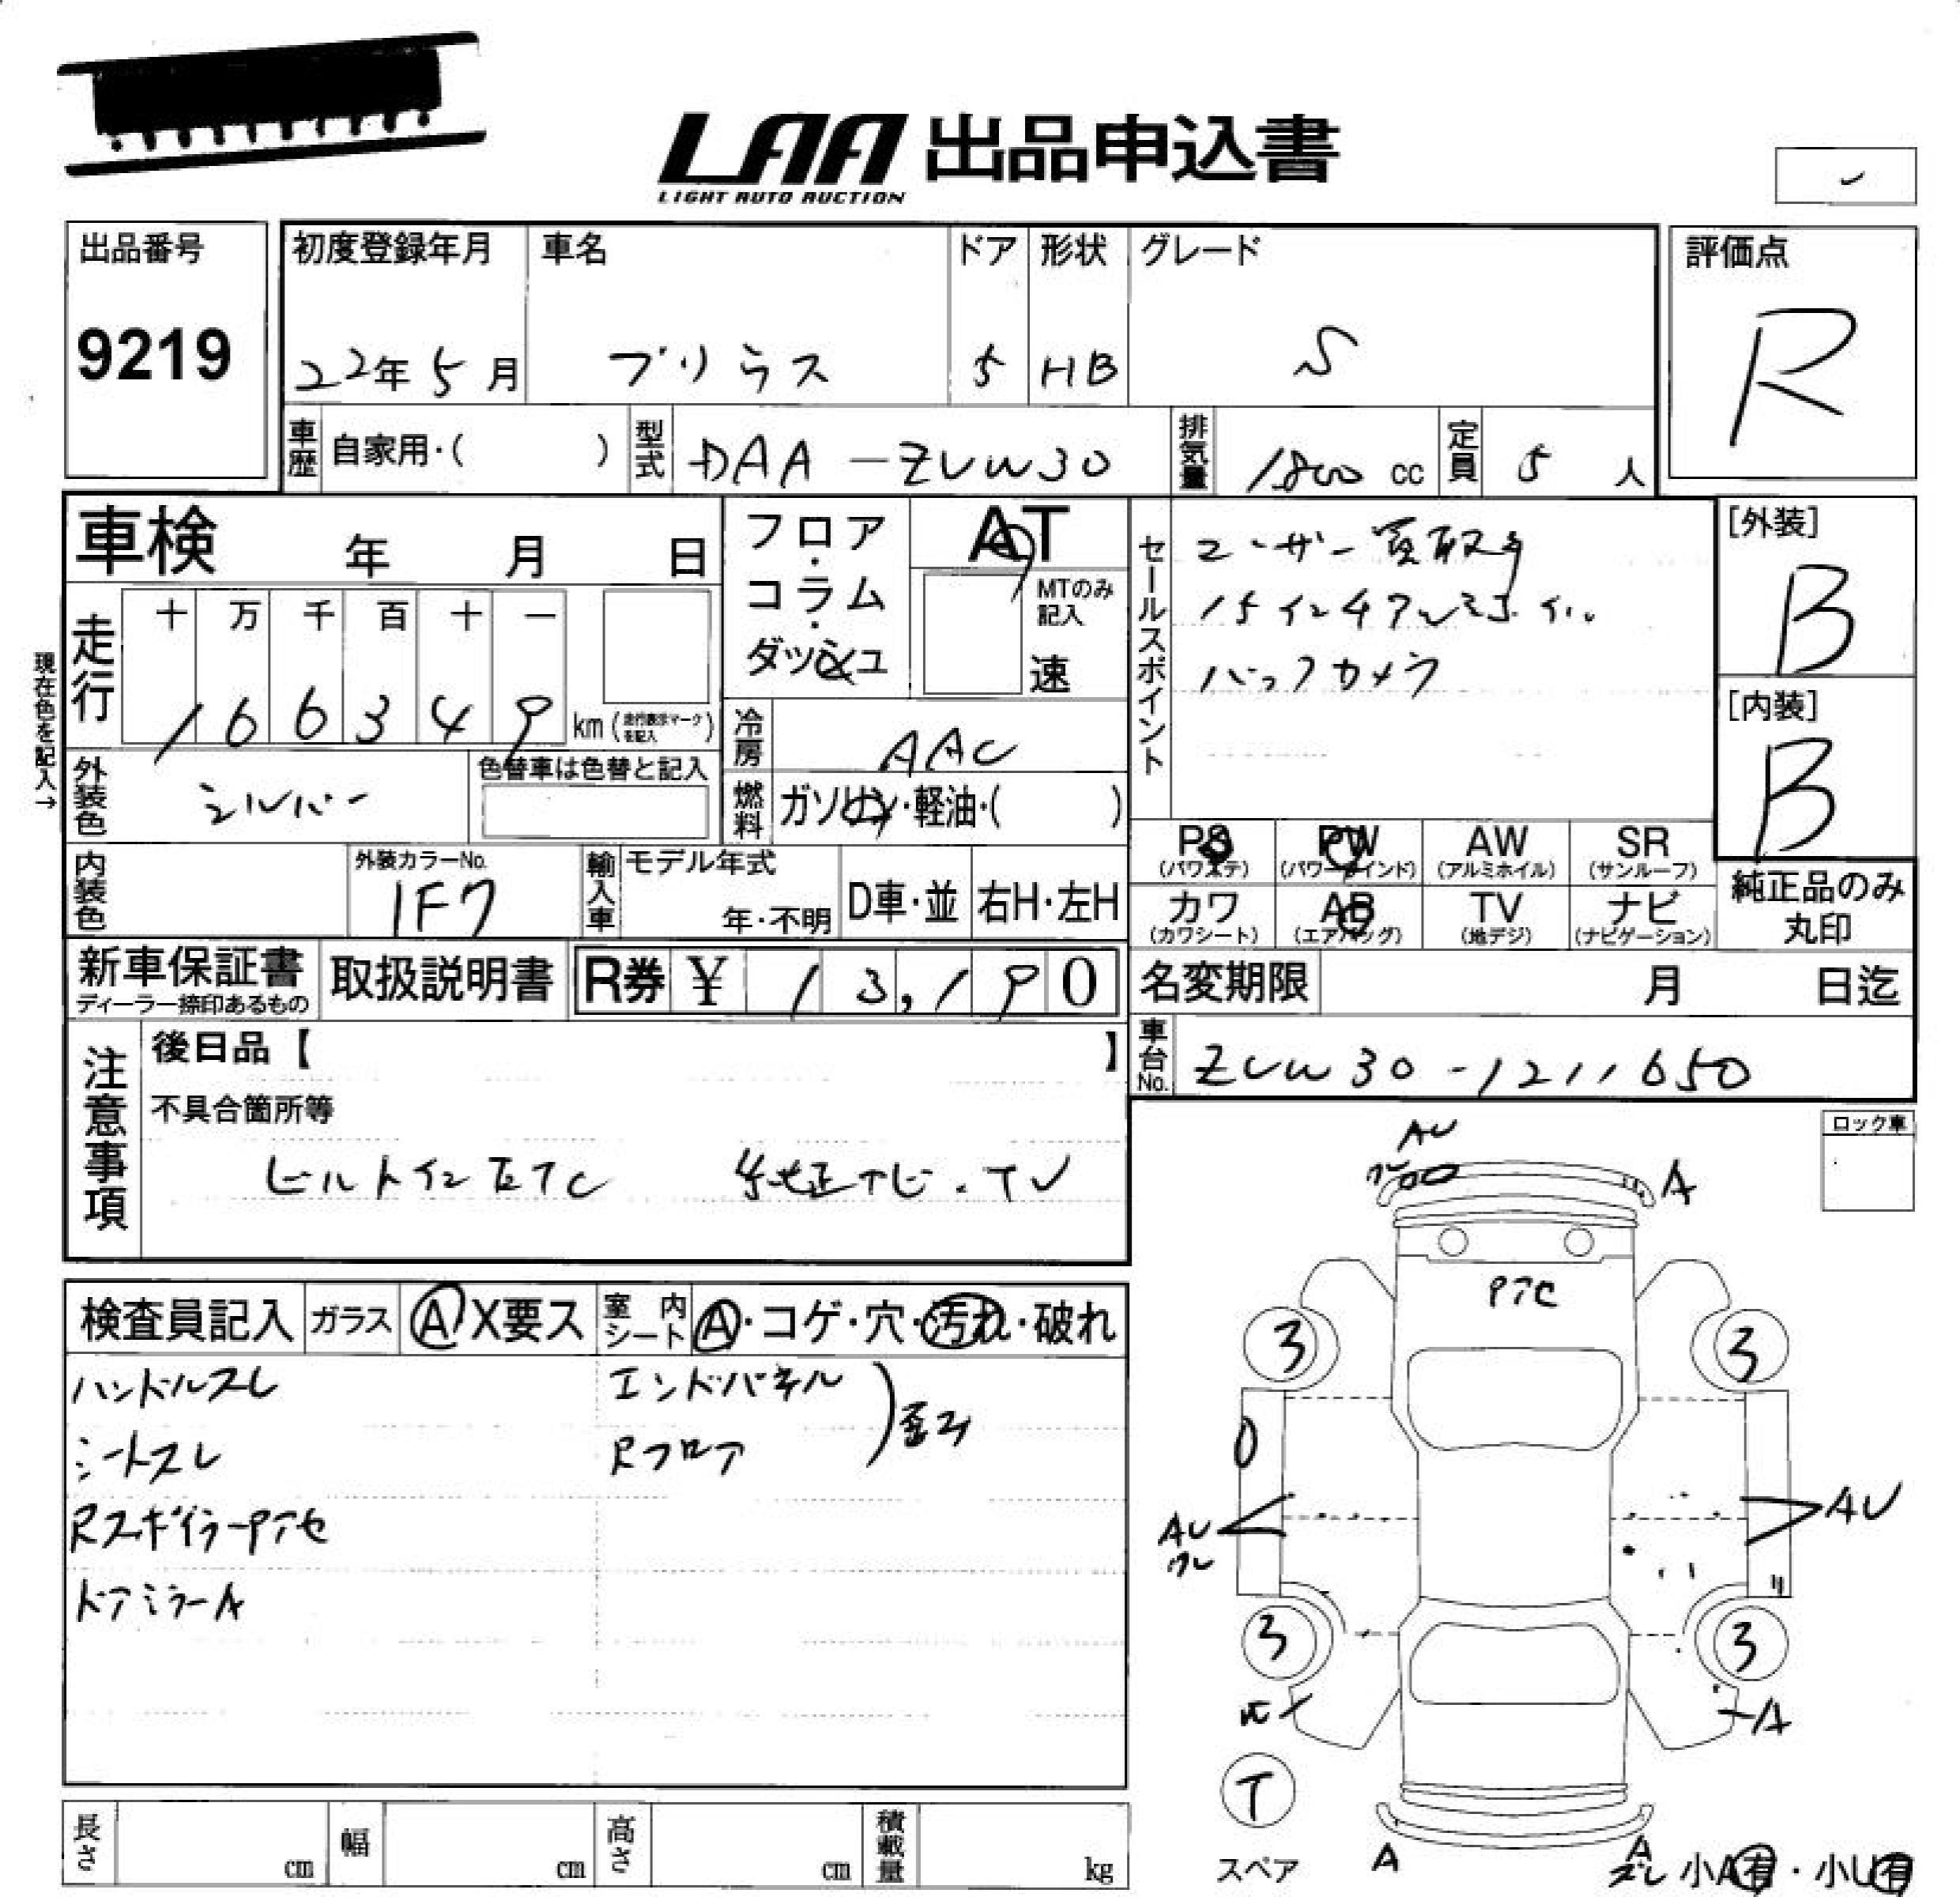 LAA 出品申込書
LIGHT AUTO AUCTION
出品番号
9219
初度登録年月 車名 ドア 形状 グレード
22年 5月 プリウス 5 HB S
評価点
R
車歴 自家用・( ) 型式 DAA-ZVW30 排気量 1800 cc 定員 5 人
車検 年 月 日
フロア・コラム・ダッシュ
AT
MTのみ記入
速
セールスポイント
ユーザー買取車
15インチアルミホイル
バックカメラ
[外装]
B
[内装]
B
現在色を記入→
走行 十 万 千 百 十 一
1 6 6 3 4 9 km (走行表示マークを記入)
冷房 AAC
外装色 シルバー 色替車は色替と記入
燃料 ガソリン・軽油・( )
内装色 外装カラーNo. 1F7
輸入車 モデル年式 年・不明 D車・並 右H・左H
PS (パワステ) PW (パワーウインド) AW (アルミホイル) SR (サンルーフ)
カワ (カワシート) AB (エアバッグ) TV (地デジ) ナビ (ナビゲーション)
純正品のみ丸印
新車保証書 ディーラー捺印あるもの 取扱説明書 R券 ¥ 13,190
名変期限 月 日迄
車台No. ZVW30-1211650
注意事項
後日品【 】
不具合箇所等
ビルトインETC 純正ナビ.TV
ロック車
検査員記入 ガラス A X要ス 室内シート A・コゲ・穴・汚れ・破れ
ハンドルスレ エンドパネル
シートスレ Rフロア
歪み
Rスポイラーアトセ
ドアミラーA
AU
A
3 3
AU
AU
3 3
A
T
スペア
A A
ズレ 小A有・小U有
長さ cm 幅 cm 高さ cm 積載量 kg